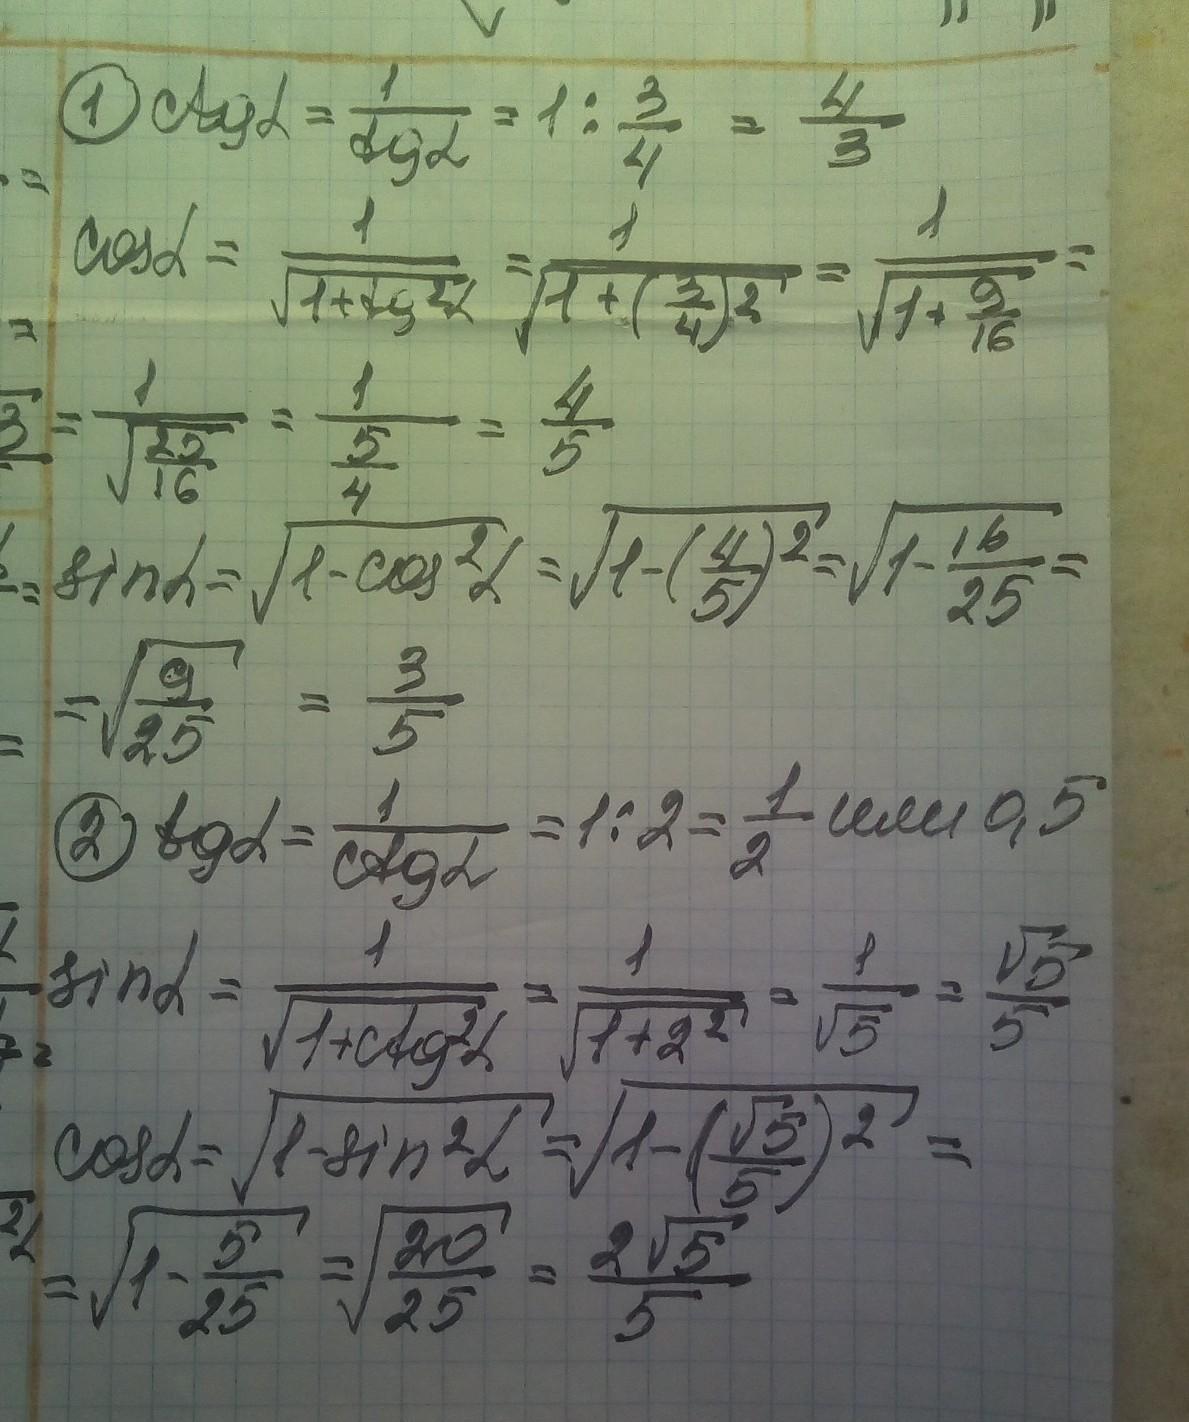 ① ctgα = 1/tgα = 1 : 3/4 = 4/3
cosα = 1/√(1+tg²α) = 1/√(1+(3/4)²) = 1/√(1+9/16) =
= 1/√(25/16) = 1/(5/4) = 4/5
sinα = √(1-cos²α) = √(1-(4/5)²) = √(1-16/25) =
= √(9/25) = 3/5
② tgα = 1/ctgα = 1 : 2 = 1/2 или 0,5
sinα = 1/√(1+ctg²α) = 1/√(1+2²) = 1/√5 = √5/5
cosα = √(1-sin²α) = √(1-(√5/5)²) =
= √(1-5/25) = √(20/25) = 2√5/5